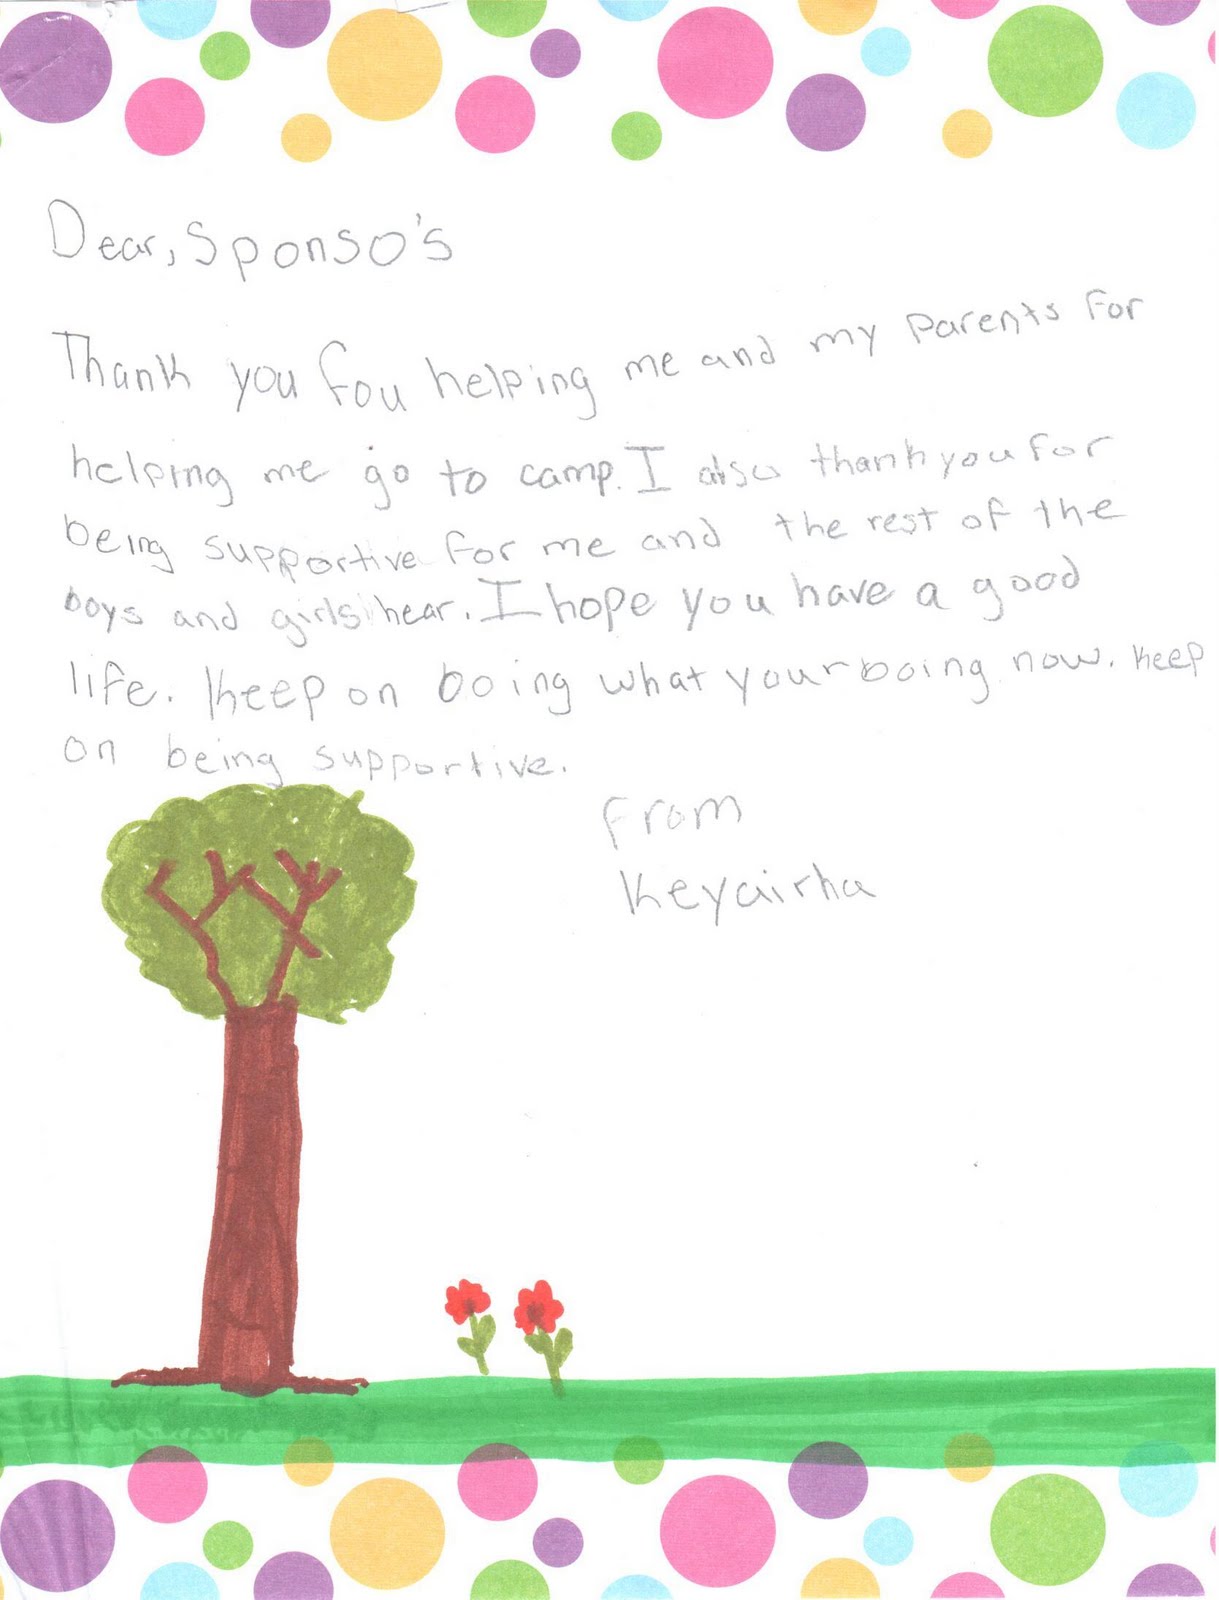 Dear, Sponso's
Thank you fou helping me and my parents for
helping me go to camp. I also thank you for
being supportive for me and the rest of the
boys and girls hear. I hope you have a good
life. Keep on boing what your boing now. Keep
on being supportive.
from
Keyairha